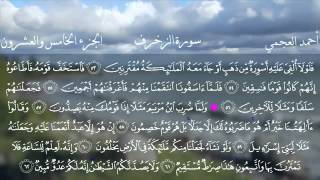 أحمد العجمي سورة الزخرف الجزء الخامس والعشرون
فَلَوْلَآ أُلْقِىَ عَلَيْهِ أَسْوِرَةٌ مِّن ذَهَبٍ أَوْ جَآءَ مَعَهُ ٱلْمَلَـٰٓئِكَةُ مُقْتَرِنِينَ ٥٣ فَٱسْتَخَفَّ قَوْمَهُۥ فَأَطَاعُوهُ
إِنَّهُمْ كَانُوا۟ قَوْمًا فَـٰسِقِينَ ٥٤ فَلَمَّآ ءَاسَفُونَا ٱنتَقَمْنَا مِنْهُمْ فَأَغْرَقْنَـٰهُمْ أَجْمَعِينَ ٥٥ فَجَعَلْنَـٰهُمْ
سَلَفًا وَمَثَلًا لِّلْـَٔاخِرِينَ ٥٦ وَلَمَّا ضُرِبَ ٱبْنُ مَرْيَمَ مَثَلًا إِذَا قَوْمُكَ مِنْهُ يَصِدُّونَ ٥٧ وَقَالُوٓا۟
ءَأَـٰلِهَتُنَا خَيْرٌ أَمْ هُوَ مَا ضَرَبُوهُ لَكَ إِلَّا جَدَلًۢا بَلْ هُمْ قَوْمٌ خَصِمُونَ ٥٨ إِنْ هُوَ إِلَّا عَبْدٌ أَنْعَمْنَا عَلَيْهِ
وَجَعَلْنَـٰهُ مَثَلًا لِّبَنِىٓ إِسْرَٰٓءِيلَ ٥٩ وَلَوْ نَشَآءُ لَجَعَلْنَا مِنكُم مَّلَـٰٓئِكَةً فِى ٱلْأَرْضِ يَخْلُفُونَ ٦٠ وَإِنَّهُۥ لَعِلْمٌ لِّلسَّاعَةِ فَلَا
تَمْتَرُنَّ بِهَا وَٱتَّبِعُونِ هَـٰذَا صِرَٰطٌ مُّسْتَقِيمٌ ٦١ وَلَا يَصُدَّنَّكُمُ ٱلشَّيْطَـٰنُ إِنَّهُۥ لَكُمْ عَدُوٌّ مُّبِينٌ ٦٢